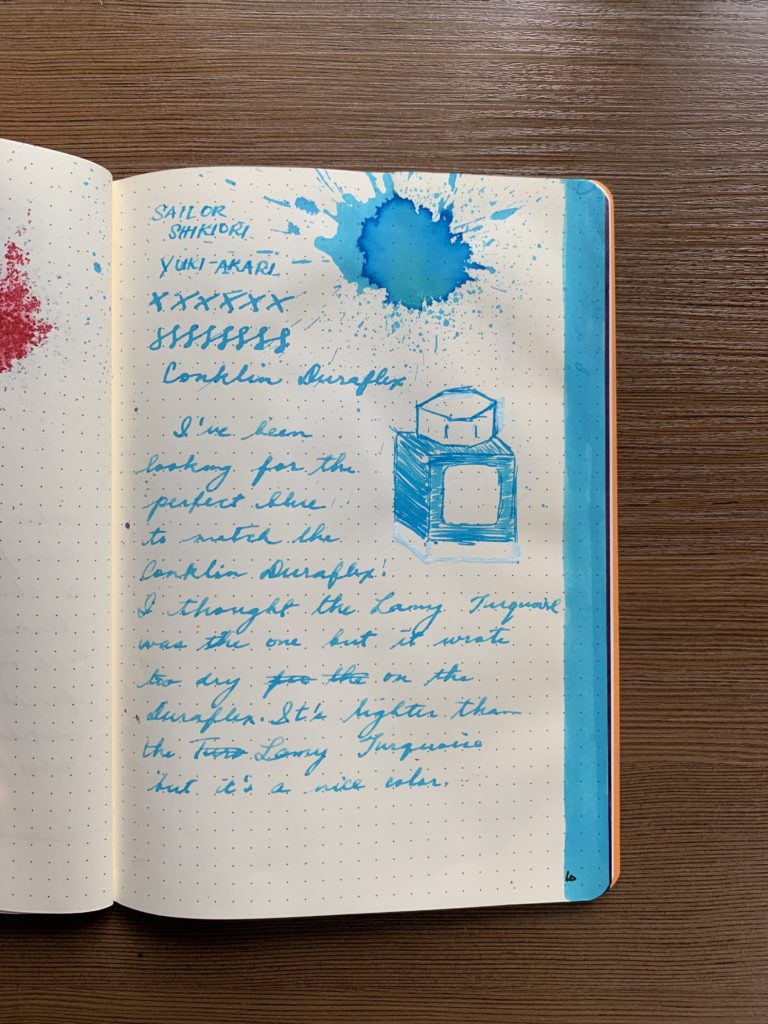 SAILOR
SHIKIORI
YUKI-AKARI
XXXXXX
ffffffff
Conklin Duraflex
I've been
looking for the
perfect blue
to match the
Conklin Duraflex!
I thought the Lamy Turquoise
was the one but it wrote
to dry for the on the
Duraflex. It's lighter than
the Turo Lamy Turquoise
but it's a nice color.